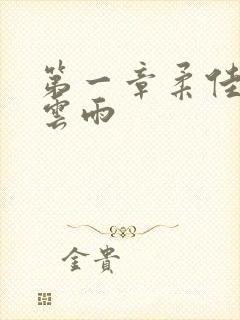 第一章柔佳
雲雨
金貴